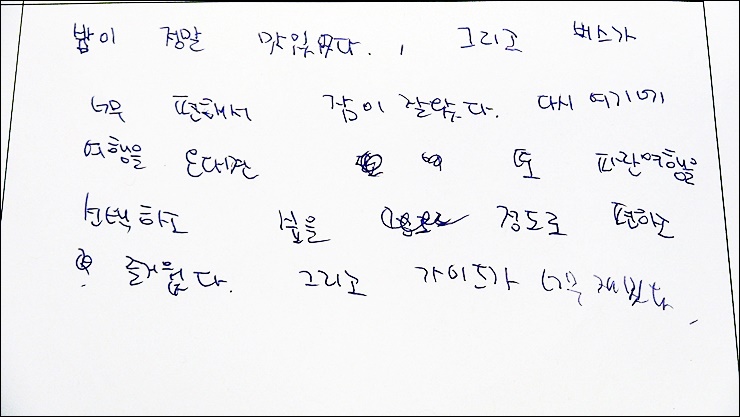 밥이 정말 맛있었다. 그리고 버스가
너무 편해서 잠이 잘왔다. 다시 여기에
여행을 온다면 또 파란여행을
선택하고 싶을 정도로 편하고
즐거웠다. 그리고 가이드가 너무 재밌다.